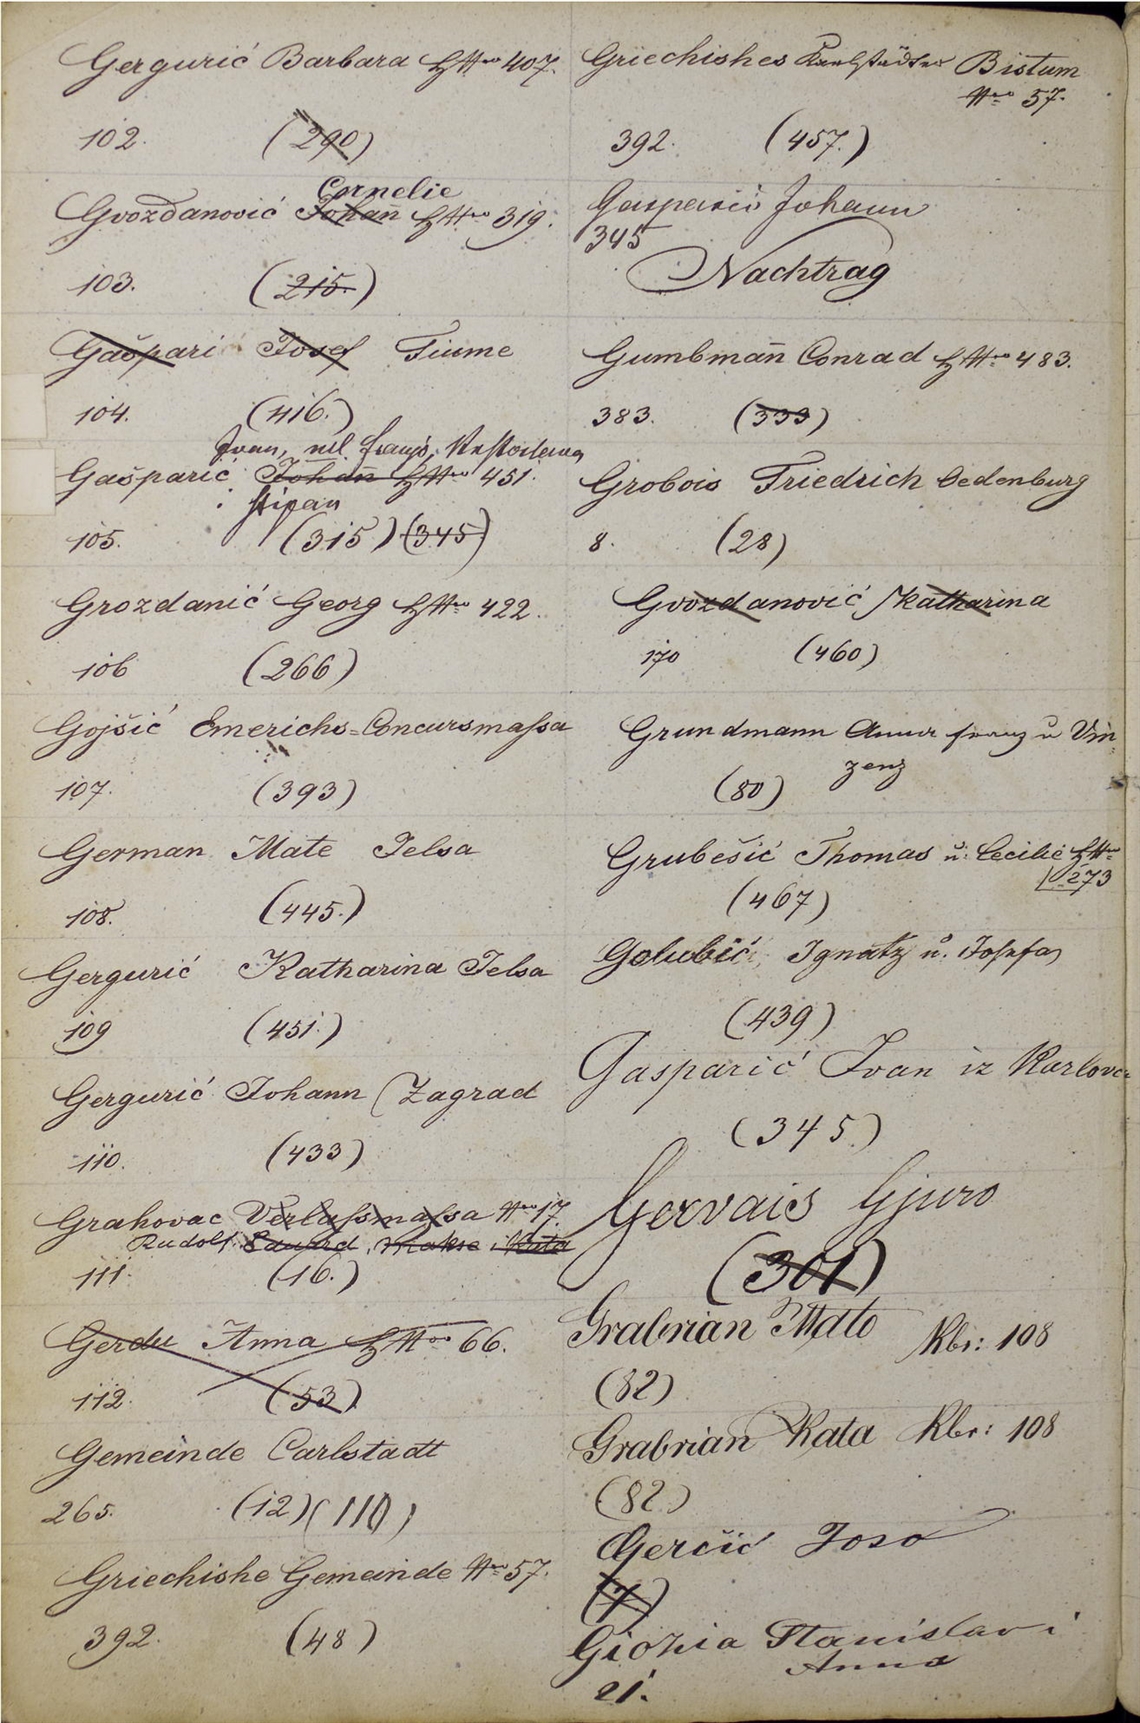 Gergurić Barbara HNro 407.
102. (290)
Cornelie
Gvozdanović Johan̄ HNro 319.
103. (215.)
Gašpari Josef Fiume
104. (416.)
Ivan,
Gašparić Johan̄ HNro 451.
i Stipan
105. (315) (345)
Grozdanić Georg HNro 422.
106 (266)
Gojšić Emerichs=Concursmassa
107. (393)
German Mate Jelsa
108. (445.)
Gergurić Katharina Jelsa
109 (451.)
Gergurić Johann (Zagrad
110. (433)
Grahovac Verlassmassa Nro 17.
Rudolf Eduard, Makso i Kata
111. (16.)
Gerdu Anna HNro 66.
112. (53)
Gemeinde Carlstadt
265. (12) (110)
Griechishe Gemeinde Nro 57.
392. (48)
Griechishes Karlstädter Bistum
Nro 57.
392. (457.)
Gasparić Johann
345
Nachtrag
Gumbman̄ Conrad HNro 483.
383. (333)
Grobois Friedrich Oedenburg
8. (28)
Gvozdanović Katharina
170 (460)
Grundmann Anna Franz u Vin
zenz
(80)
Grubešić Thomas u. Cecilie HNro
273
(467)
Golubić Ignatz u. Josefa
(439)
Gasparić Ivan iz Karlovca
(345)
Gervais Gjuro
(301)
Grabrian Mato Kbr: 108
(82)
Grabrian Kata Kbr: 108
(82)
Gerčić Joso
(7)
Stanislav i
Anna
21.